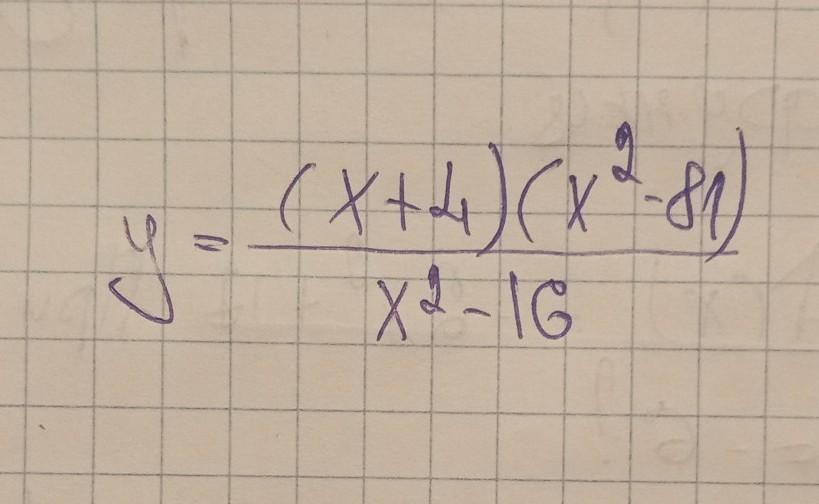 y = (x+4)(x²-81)
x²-16